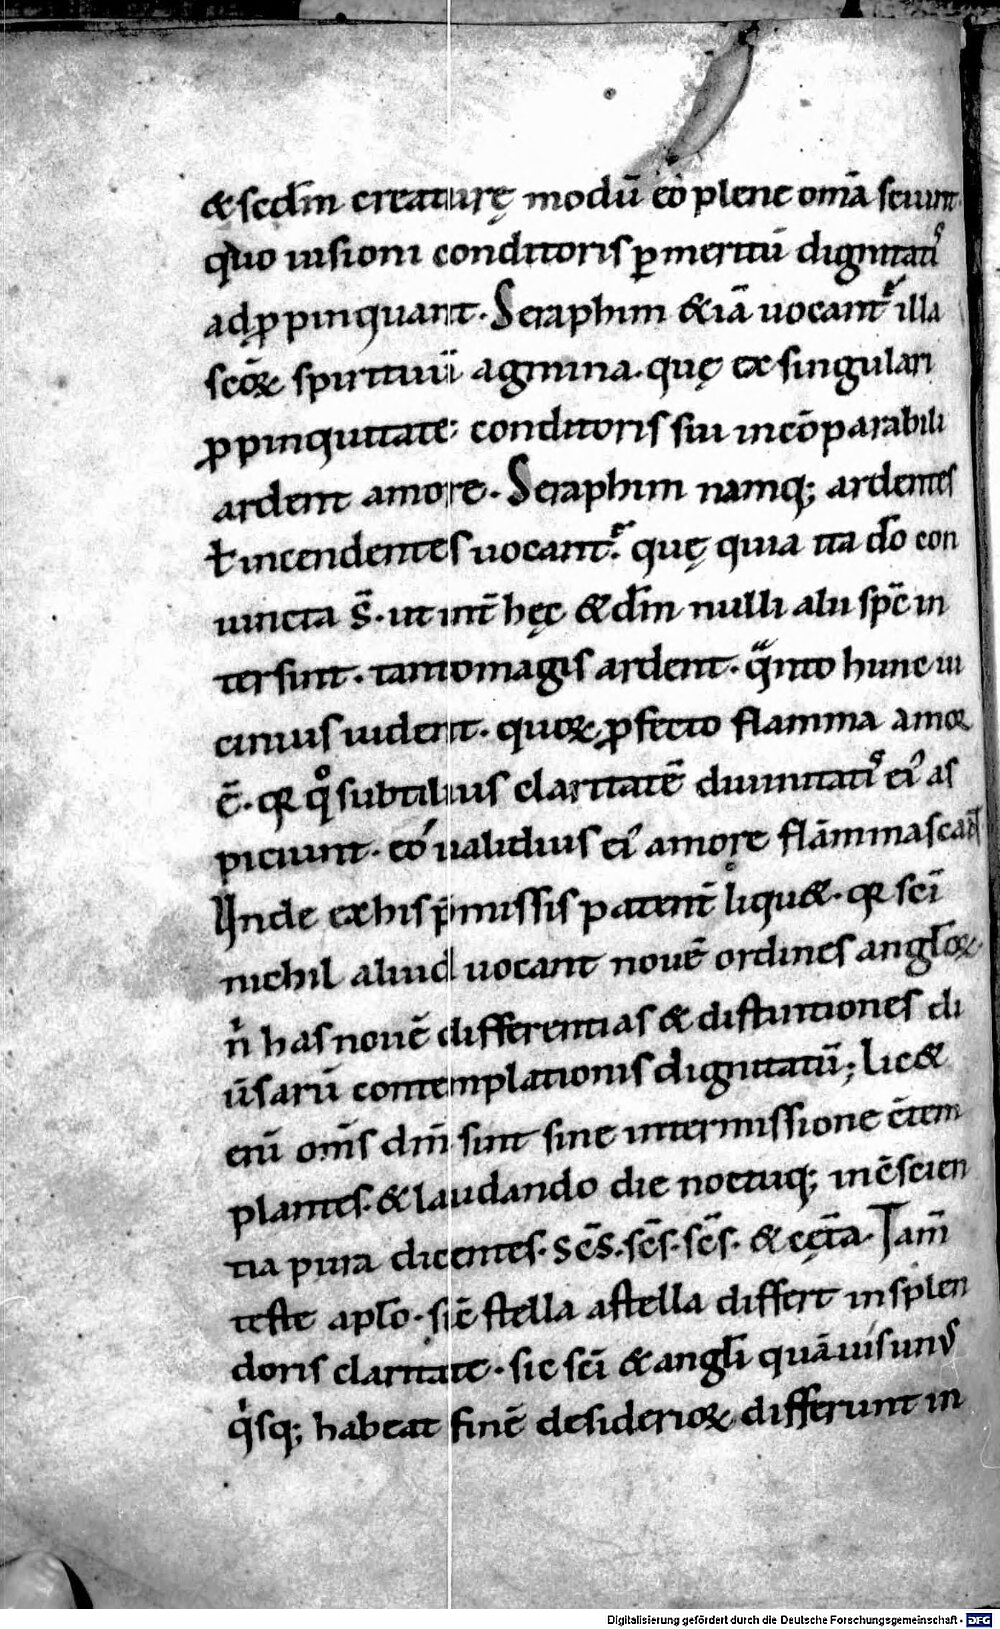 &secdm̄ creaturę modū eo plene om̄a sciunt
quo uisioni conditoris ꝑ meritū dignitatꝭ
adꝓpinquant. Seraphim &iā uocantᷣ illa
scōꝝ spirituū agmina. quę ex singulari
ꝓpinquitate: conditoris sui incōparabili
ardent amore. Seraphim namq; ardentes
ł incendentes uocantᷣ. quę quia ita dō con
iuncta s̄. ut int̄ hęc & dm̄ nulli alii spc̄ in
tersint. tanto magis ardent. qᷓnto hunc ui
cinius uident. quoꝝ ꝓfecto flamma amor
ē. qꝛ qͦ subtilius claritatē diuinitatꝭ eiꝰ as
piciunt. eo ualidius eiꝰ amore flāmmascunt
Unde ex his p̄missis patent̄ liqu&. qꝛ sc̄i
nichil aliud uocant nouē ordines angl̄oꝝ.
n̍ has nouē differentias & distinctiones di
ūsarū contemplationis dignitatū; lic&
enī om̄s dm̄ sint sine intermissione c̄tem
plantes. & laudando die noctuq; in c̄scien
tia pura dicentes. sc̄s. sc̄s. sc̄s. & cęt̄a. Tam̄
teste apl̄o. sic̄ stella a stella differt in splen
doris claritate. sic sc̄i & angl̄i quāuis unꝰ
q̍sq; habeat finē desiderioꝝ differunt in
Digitalisierung gefördert durch die Deutsche Forschungsgemeinschaft - DFG